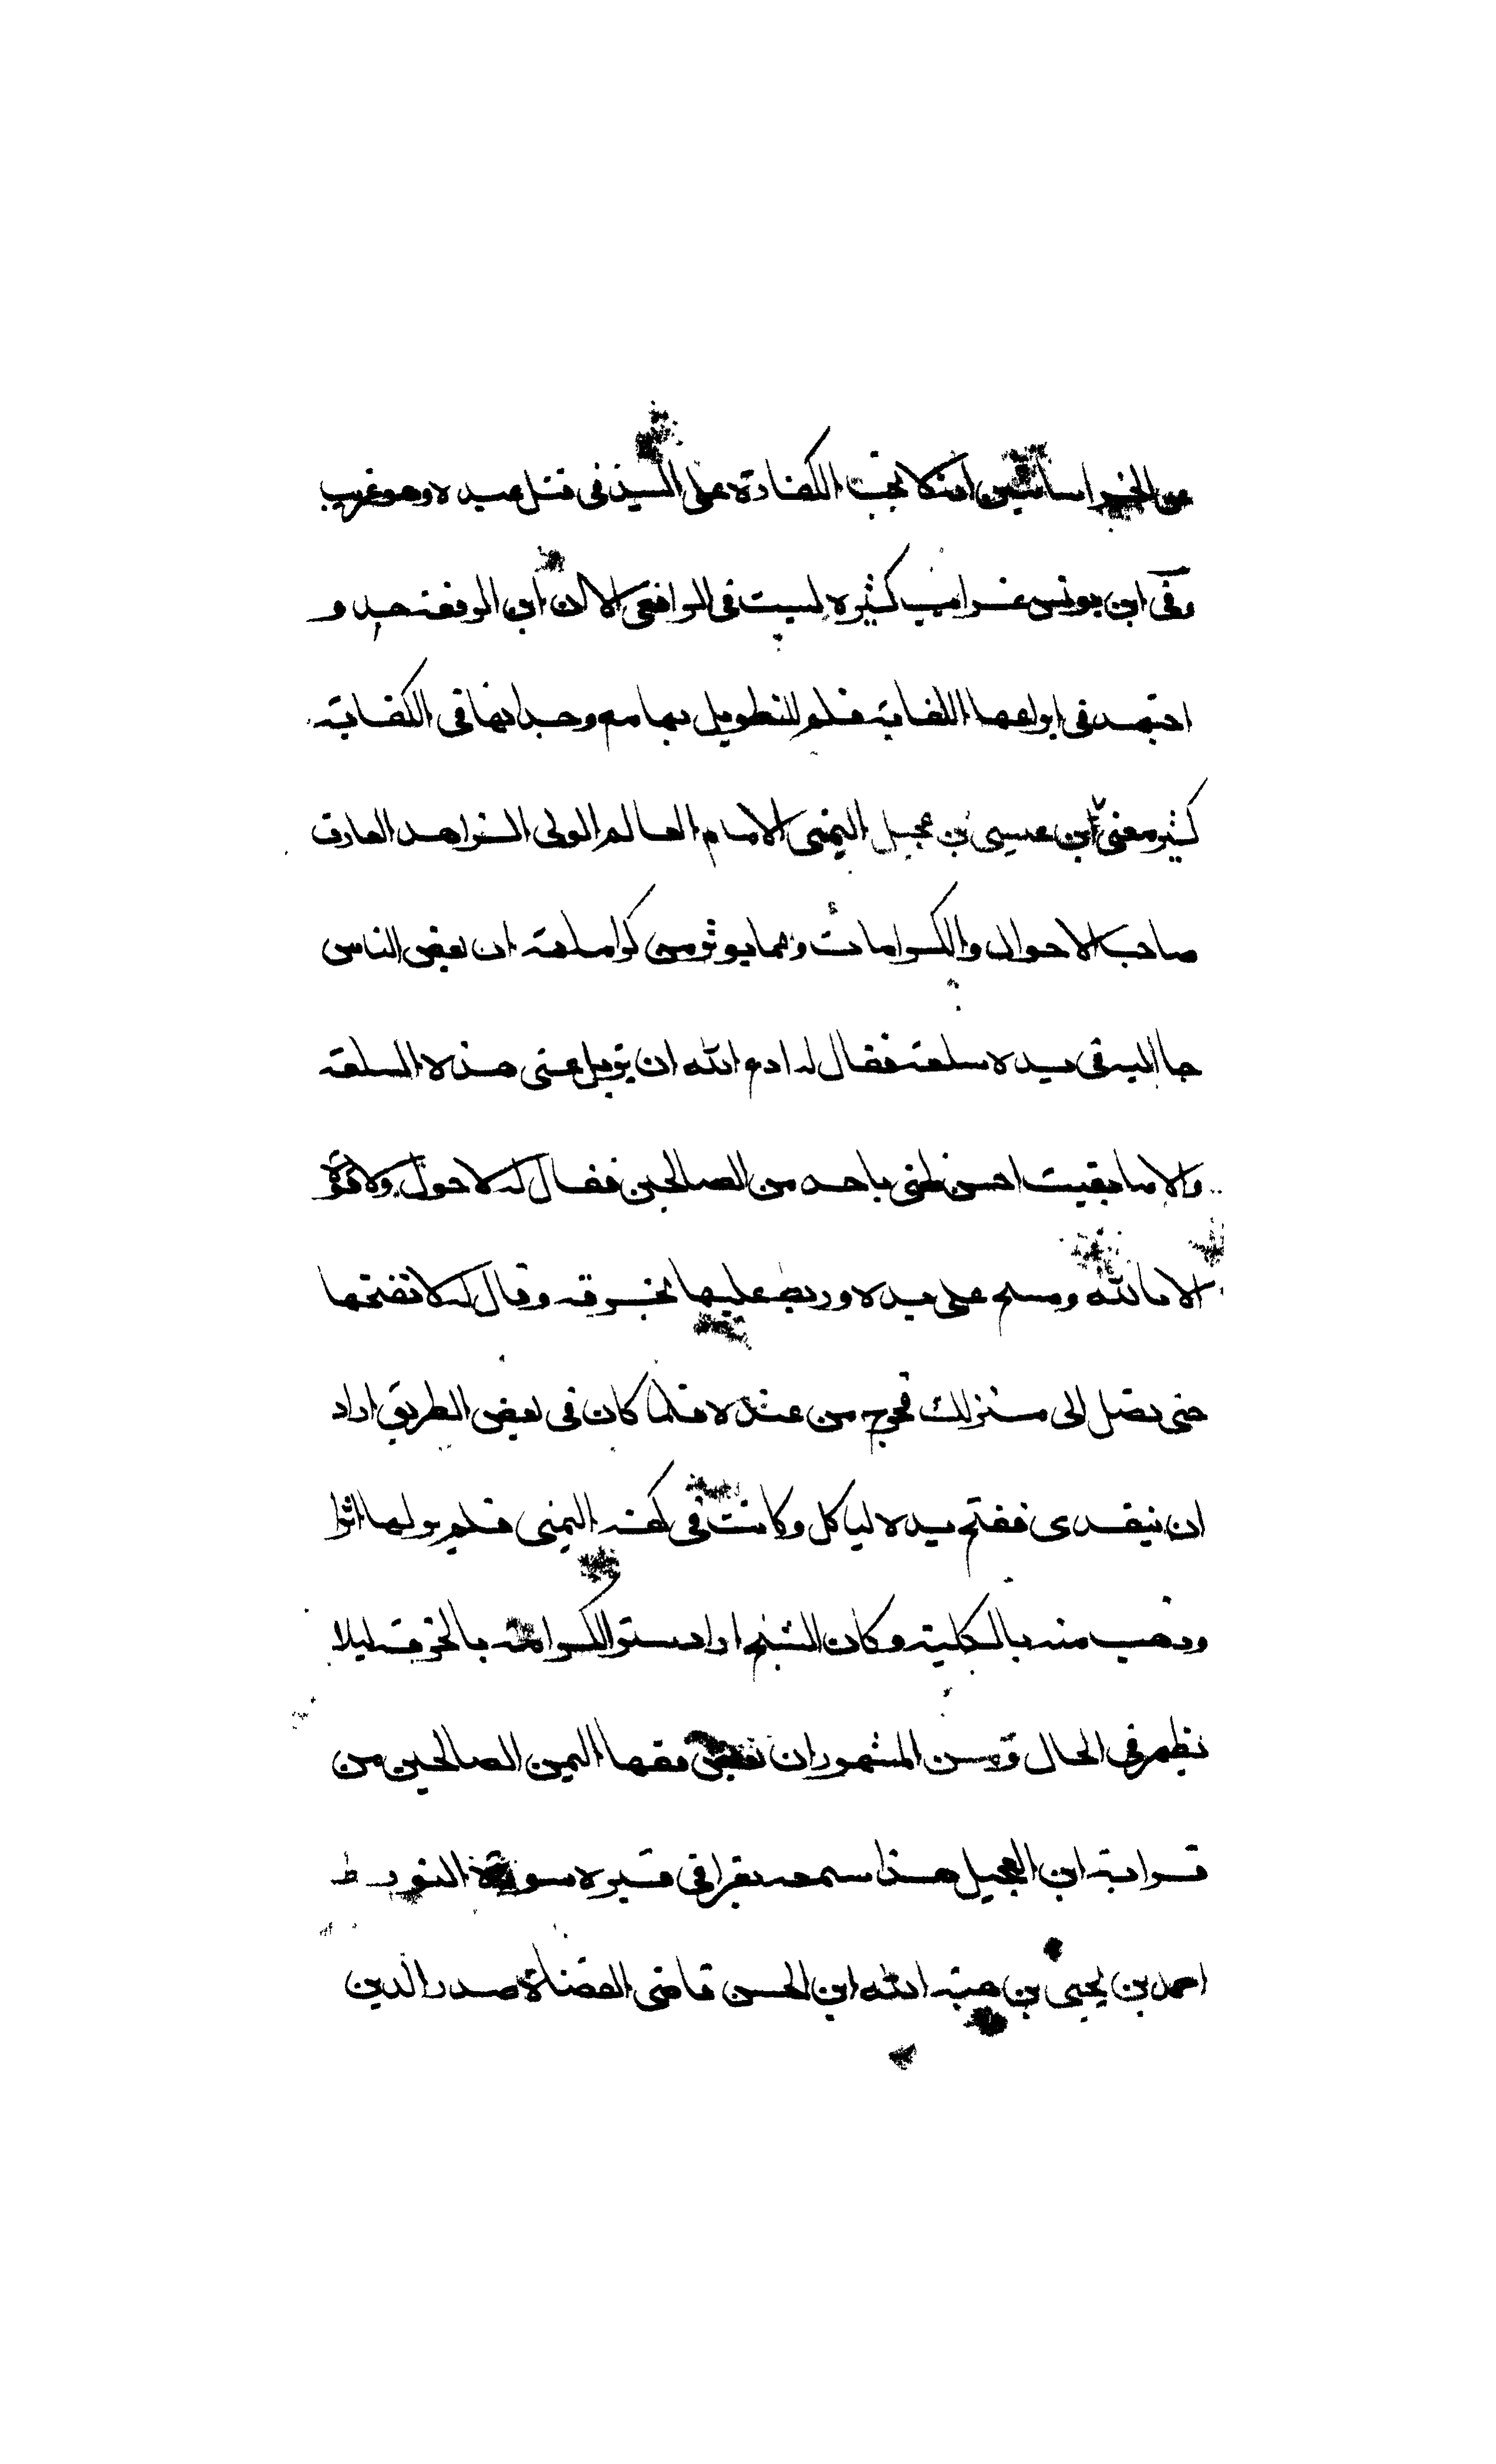 عن الخراسانيين انه لا تجب الكفارة على السيد فى قتل عبده وهو غريب
وفى ابن يونس غرايب كثيره ليست فى الرافعى الا ان ابن الرفعة حد و
اجتهد فى ايداعها الكفاية فلم للتطويل بها مع وجدانها فى الكفاية
كثير معنى ابن عيسى بن عجيل اليمنى الامام العالم الولى الزاهد العارف
صاحب الاحوال والكرامات ومما يوثر من كراماته ان بعض الناس
جا اليه فى يده سلعة فقال له ادع الله ان يزيل عنى هذه السلعة
والا ما بقيت احسن ظنى باحد من الصالحين فقال له لا حول ولا قوة
الا بالله ومسح على يده وربط عليها بخرقة وقال له لا تفتحها
حتى تصل الى منزلك فخرج من عنده فلما كان فى بعض الطريق اراد
ان يتغدى ففتح يده لياكل وكانت فى كفه اليمنى فلم ير لها اثرا
وذهب منه بالكلية وكان الشيخ اراد ستر الكرامة بالخرقة ليلا
تظهر فى الحال ومن المشهور ان بعض فقها اليمن الصالحين من
قرابة ابن العجيل هذا سمعه يقرا فى قبره سورة النور ط
احمد بن يحيى بن هبة الله ابن الحسن قاضى القضاة صدر الدين